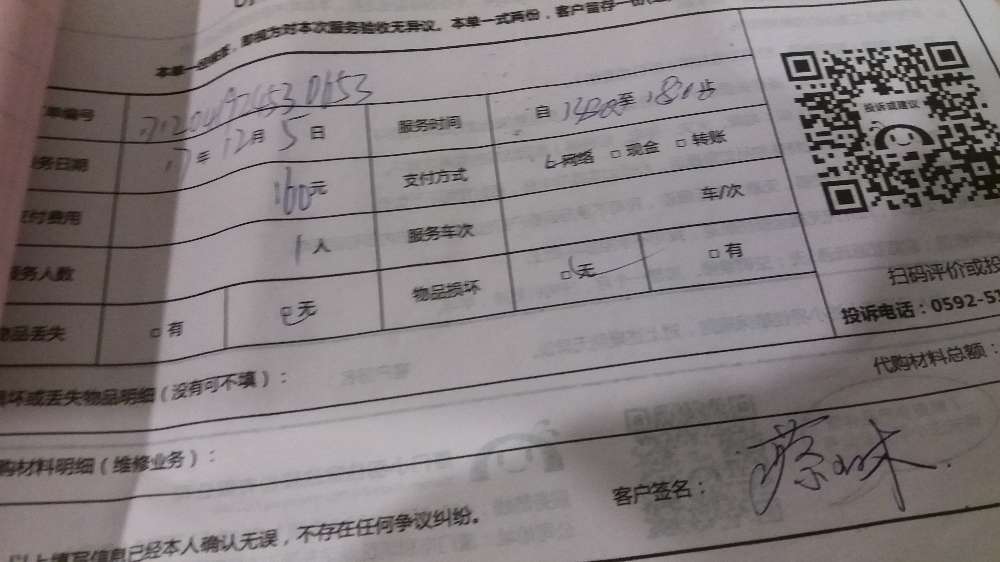 对本次服务验收无异议。本单一式两份，客户留存一份
单编号
服务时间 自 至
投诉或建议
务日期 17年12月5日
支付方式 网络 □ 现金 □ 转账
付费用 160元
服务车次 车/次
服务人数 1人
物品损坏 □ 无 □ 有
扫码评价或投
物品丢失 □ 有 □ 无
投诉电话：0592-5
坏或丢失物品明细（没有可不填）：
代购材料总额：
购材料明细（维修业务）：
客户签名：
以上填写信息已经本人确认无误，不存在任何争议纠纷。